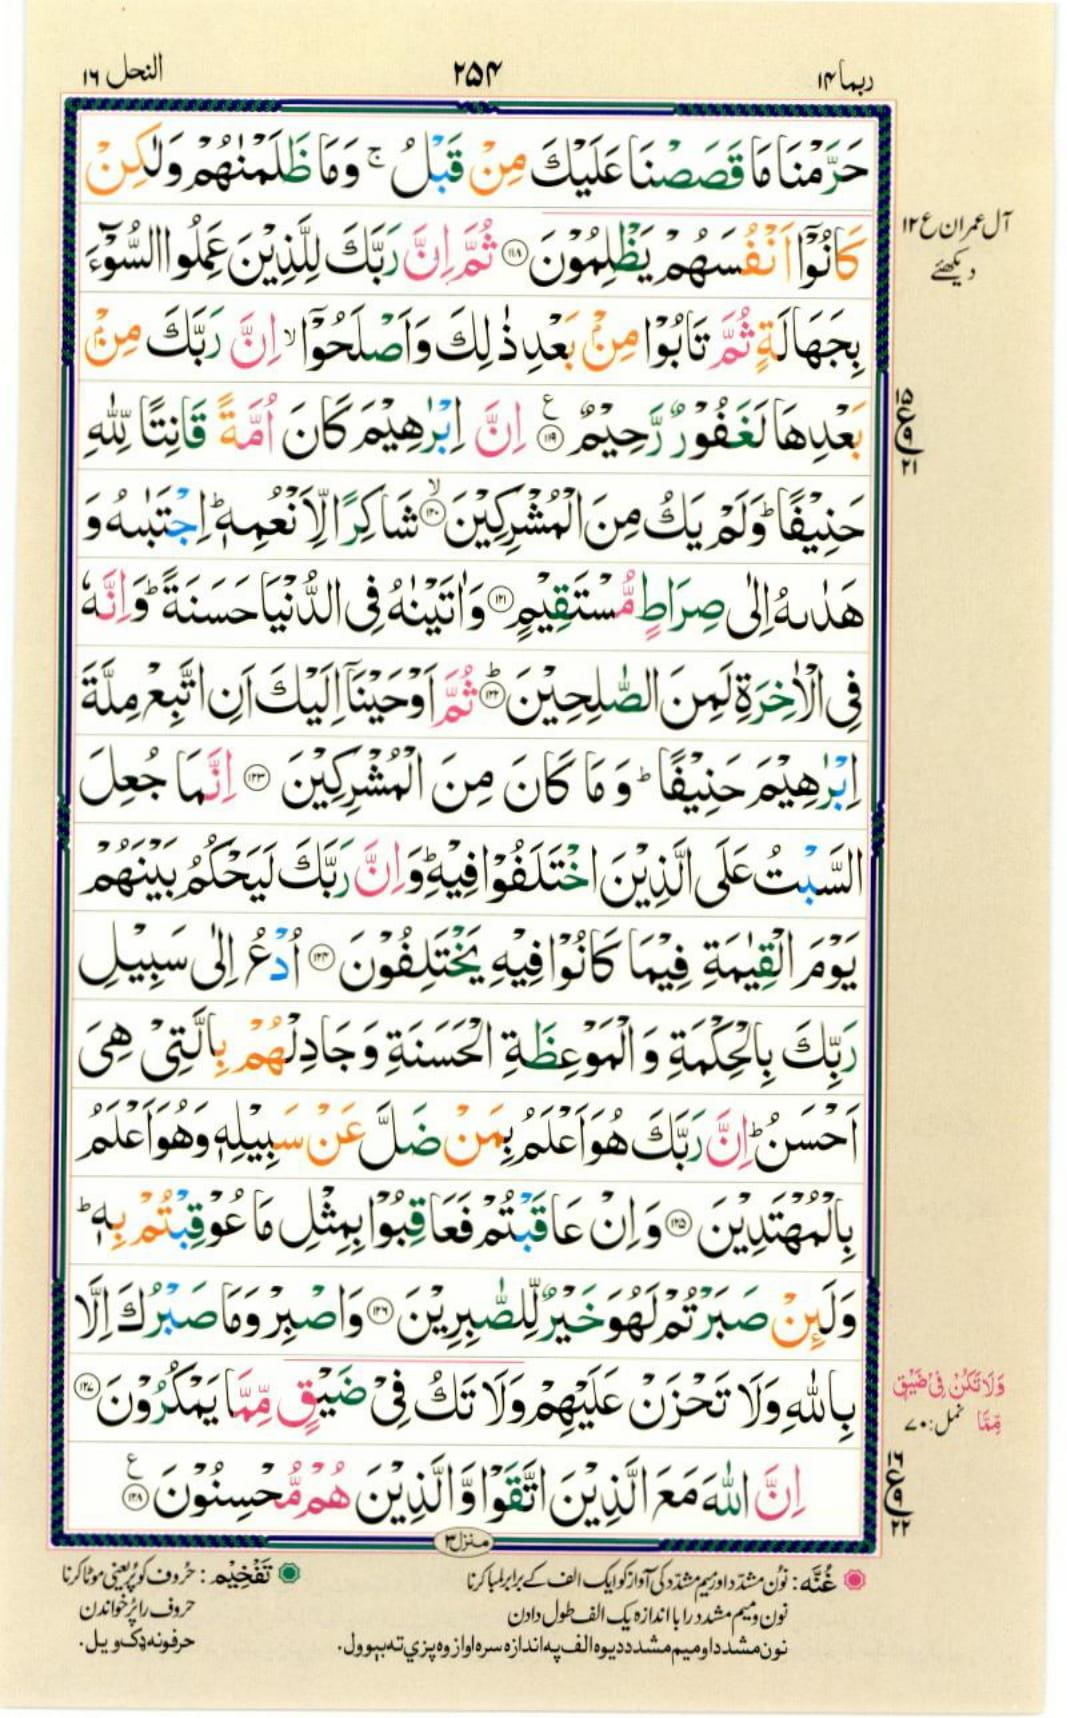 ربما ۱۴
۲۵۴
النحل ۱۶
حَرَّمْنَا مَا قَصَصْنَا عَلَيْكَ مِنْ قَبْلُ ۚ وَمَا ظَلَمْنٰهُمْ وَلٰكِنْ
كَانُوْٓا اَنْفُسَهُمْ يَظْلِمُوْنَ ۝۱۱۸ ثُمَّ اِنَّ رَبَّكَ لِلَّذِيْنَ عَمِلُوا السُّوْٓءَ
بِجَهَالَةٍ ثُمَّ تَابُوْا مِنْۢ بَعْدِ ذٰلِكَ وَاَصْلَحُوْٓا ۙ اِنَّ رَبَّكَ مِنْۢ
بَعْدِهَا لَغَفُوْرٌ رَّحِيْمٌ ۝۱۱۹ ع اِنَّ اِبْرٰهِيْمَ كَانَ اُمَّةً قَانِتًا لِّلّٰهِ
حَنِيْفًا ؕ وَلَمْ يَكُ مِنَ الْمُشْرِكِيْنَ ۝۱۲۰ ۙ شَاكِرًا لِّاَنْعُمِهٖ ؕ اِجْتَبٰىهُ وَ
هَدٰىهُ اِلٰى صِرَاطٍ مُّسْتَقِيْمٍ ۝۱۲۱ وَاٰتَيْنٰهُ فِى الدُّنْيَا حَسَنَةً ؕ وَاِنَّهٗ
فِى الْاٰخِرَةِ لَمِنَ الصّٰلِحِيْنَ ۝۱۲۲ ؕ ثُمَّ اَوْحَيْنَآ اِلَيْكَ اَنِ اتَّبِعْ مِلَّةَ
اِبْرٰهِيْمَ حَنِيْفًا ؕ وَمَا كَانَ مِنَ الْمُشْرِكِيْنَ ۝۱۲۳ اِنَّمَا جُعِلَ
السَّبْتُ عَلَى الَّذِيْنَ اخْتَلَفُوْا فِيْهِ ؕ وَاِنَّ رَبَّكَ لَيَحْكُمُ بَيْنَهُمْ
يَوْمَ الْقِيٰمَةِ فِيْمَا كَانُوْا فِيْهِ يَخْتَلِفُوْنَ ۝۱۲۴ اُدْعُ اِلٰى سَبِيْلِ
رَبِّكَ بِالْحِكْمَةِ وَالْمَوْعِظَةِ الْحَسَنَةِ وَجَادِلْهُمْ بِالَّتِىْ هِىَ
اَحْسَنُ ؕ اِنَّ رَبَّكَ هُوَ اَعْلَمُ بِمَنْ ضَلَّ عَنْ سَبِيْلِهٖ وَهُوَ اَعْلَمُ
بِالْمُهْتَدِيْنَ ۝۱۲۵ وَاِنْ عَاقَبْتُمْ فَعَاقِبُوْا بِمِثْلِ مَا عُوْقِبْتُمْ بِهٖ ؕ
وَلَئِنْ صَبَرْتُمْ لَهُوَ خَيْرٌ لِّلصّٰبِرِيْنَ ۝۱۲۶ وَاصْبِرْ وَمَا صَبْرُكَ اِلَّا
بِاللّٰهِ وَلَا تَحْزَنْ عَلَيْهِمْ وَلَا تَكُ فِىْ ضَيْقٍ مِّمَّا يَمْكُرُوْنَ ۝۱۲۷
اِنَّ اللّٰهَ مَعَ الَّذِيْنَ اتَّقَوْا وَّالَّذِيْنَ هُمْ مُّحْسِنُوْنَ ۝۱۲۸ ع
آل عمران ع ۱۲
دیکھئے
۱۵
ع
۹
۲۱
وَلَا تَكُنْ فِىْ ضَيْقٍ
مِّمَّا نمل: ۷۰
۱۶
ع
۹
۲۲
منزل ۳
غُنَّه: نون مشدّد اور میم مشدّد کی آواز کو ایک الف کے برابر لمبا کرنا
نون و میم مشدد را با اندازه یک الف طول دادن
نون مشدد او میم مشدد دیوه الف په اندازه سره اواز وه پزي ته بیوول.
تَفْخِيْم: حُروف کو پُر یعنی موٹا کرنا
حروف را پُر خواندن
حرفونه ډک ویل.